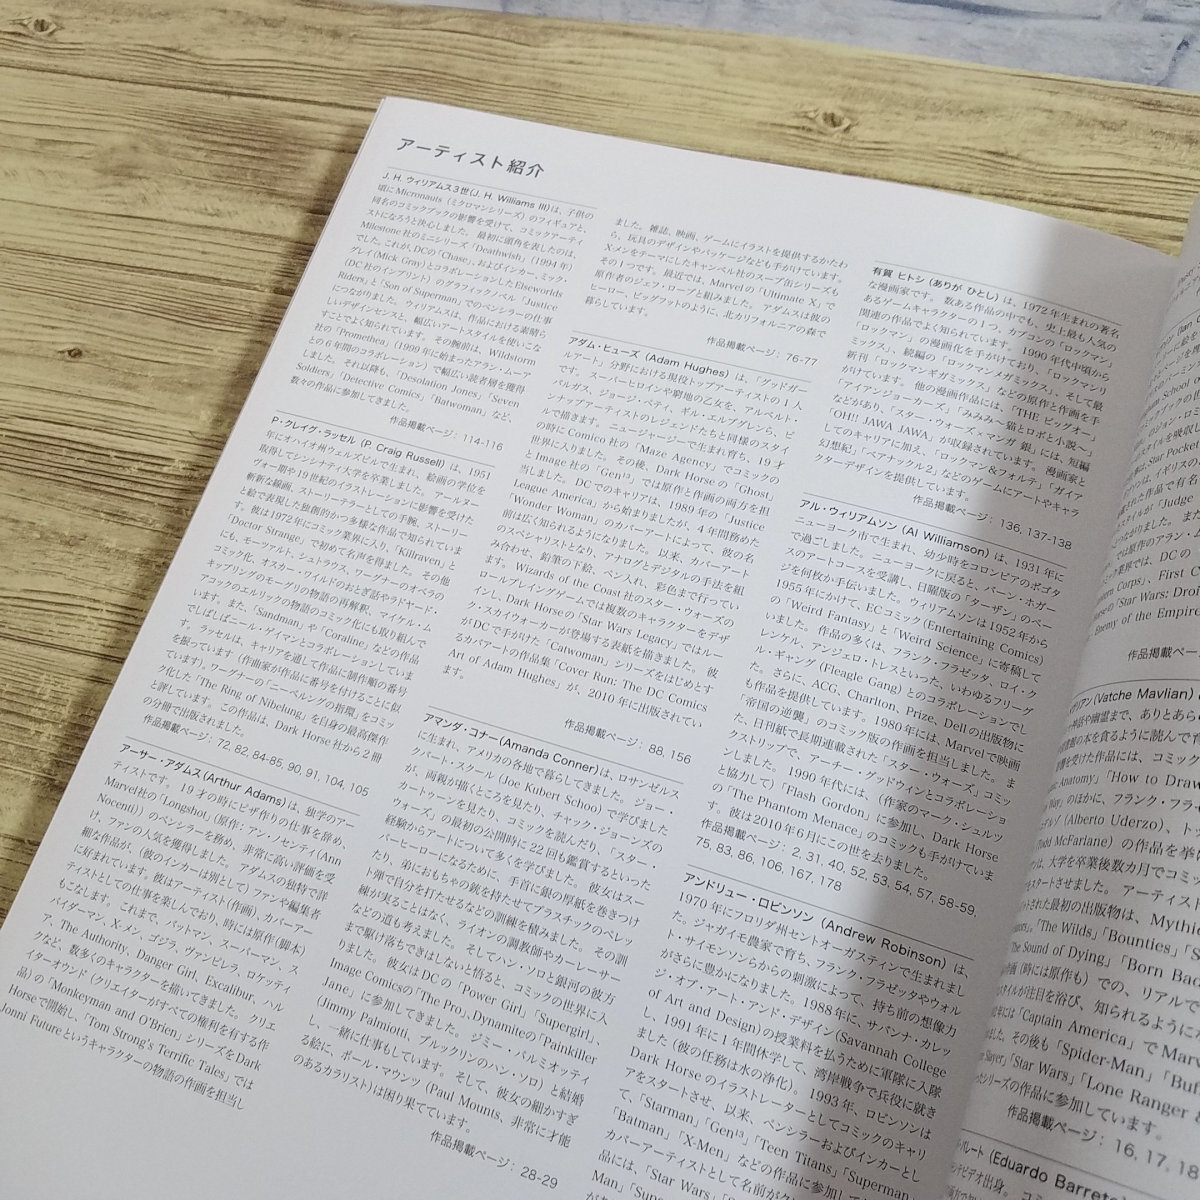 アーティスト紹介
J. H. ウィリアムス3世(J. H. Williams III)は、子供の
頃にMicronauts（ミクロマンシリーズ）のフィギュアと、
同名のコミックブックの影響を受けて、コミックアーティ
ストになろうと決心しました。 最初に頭角を表したのは、
Milestone社のミニシリーズ「Deathwish」(1994年)
でした。これが、DCの「Chase」、およびインカー、ミック・
グレイ(Mick Gray)とコラボレーションしたElseworlds
(DC社のインプリント)のグラフィックノベル「Justice
Riders」と「Son of Superman」でのペンシラーの仕事
につながりました。ウィリアムスは、作品における素晴ら
しいデザインセンスと、幅広いアートスタイルを使いこな
すことでよく知られています。 その腕前は、Wildstorm
社の「Promethea」(1999年に始まったアラン・ムーア
との6年間のコラボレーション)で幅広い読者層を獲得
しました。 それ以降も、「Desolation Jones」「Seven
Soldiers」「Detective Comics」「Batwoman」など、
数々の作品に参加してきました。
作品掲載ページ： 114-116
P・クレイグ・ラッセル (P. Craig Russell) は、1951
年にオハイオ州ウェルズビルで生まれ、絵画の学位を
取得してシンシナティ大学を卒業しました。 アールヌー
ヴォー期や19世紀のイラストレーションに影響を受けた
斬新な線画、ストーリーテラーとしての手腕、ストーリー
と絵で表現した独創的かつ多様な作品で知られていま
す。彼は1972年にコミック業界に入り、「Killraven」と
「Doctor Strange」で初めて名声を得ました。 その他
にも、モーツァルト、シュトラウス、ワーグナーのオペラの
コミック化、オスカー・ワイルドのおとぎ話やラドヤード・
キップリングのモーグリの物語の再解釈、マイケル・ム
アコックのエルリックの物語のコミック化にも取り組んで
います。また、「Sandman」や「Coraline」などの作品
でしばしばニール・ゲイマンとコラボレーションしていま
す。ラッセルは、キャリアを通して作品に制作順の番号
を振っています（作曲家が作品に番号を付けることに似
ています）。ワーグナーの「ニーベルングの指環」をコミッ
ク化した「The Ring of Nibelung」を自身の最高傑作
と評しています。この作品は、Dark Horse社から2冊
の分冊で出版されました。
作品掲載ページ： 72, 82, 84-85, 90, 91, 104, 105
アーサー・アダムス(Arthur Adams)は、独学のアー
ティストです。 19才の時にピザ作りの仕事を辞め、
Marvel社の「Longshot」(原作：アン・ノセンティ(Ann
Nocenti))のペンシラーを務め、非常に高い評価を受
け、ファンの人気を獲得しました。アダムスの独特で詳
細な作品が、(彼のインカーは別として)ファンや編集者
に好まれています。彼はアーティスト(作画)、カバーアー
ティストとしての仕事を楽しんでおり、時には原作(脚本)
もこなします。これまで、バットマン、スーパーマン、ス
パイダーマン、X-メン、ゴジラ、ヴァンピレラ、ロケッティ
ア、The Authority、Danger Girl、Excalibur、ハル
クなど、数多くのキャラクターを描いてきました。 クリエ
イターオウンド（クリエイターがすべての権利を有する作
品)の「Monkeyman and O'Brien」シリーズをDark
Horseで開始し、「Tom Strong's Terrific Tales」では
Jonni Futureというキャラクターの物語の作画を担当し
ました。 雑誌、映画、ゲームにイラストを提供するかたわ
ら、玩具のデザインやパッケージなども手がけています。
X-メンをテーマにしたキャンベル社のスープ缶シリーズも
その1つです。 最近では、Marvelの「Ultimate X」で
原作者のジェフ・ローブと組みました。アダムスは彼の
ヒーロー、ビッグフットのように、北カリフォルニアの森で
暮らしています。
作品掲載ページ： 76-77
アダム・ヒューズ (Adam Hughes) は、「グッドガー
ルアート」分野における現役トップアーティストの1人
です。 スーパーヒロインや窮地の乙女を、アルベルト・
バルガス、ジョージ・ペティ、ギル・エルブグレンら、ピ
ンナップアーティストのレジェンドたちと同様のスタイ
ルで描きます。 ニュージャージーで生まれ育ち、19才
の時にComico社の「Maze Agency」でコミックの
世界に入りました。 その後、Dark Horseの「Ghost」
とImage社の「Gen¹³」では原作と作画の両方を担
当しました。 DCでのキャリアは、1989年の「Justice
League America」から始まりましたが、4年間務めた
「Wonder Woman」のカバーアートによって、彼の名
前は広く知られるようになりました。 以来、カバーアート
のスペシャリストとなり、アナログとデジタルの手法を組
み合わせ、鉛筆の下絵、ペン入れ、彩色まで行ってい
ます。 Wizards of the Coast社のスター・ウォーズの
ロールプレイングゲームでは複数のキャラクターをデザ
インし、Dark Horseの「Star Wars Legacy」ではルー
ク・スカイウォーカーが登場する表紙を描きました。 彼
がDCで手がけた「Catwoman」シリーズをはじめとす
るカバーアートの作品集「Cover Run: The DC Comics
Art of Adam Hughes」が、2010年に出版されてい
ます。
作品掲載ページ： 88, 156
アマンダ・コナー(Amanda Conner)は、ロサンゼルス
に生まれ、アメリカの各地で暮らしてきました。 ジョー・
クバート・スクール (Joe Kubert Schoo) で学びました
が、両親が描くところを見たり、チャック・ジョーンズの
カートゥーンを見たり、コミックを読んだり、「スター・
ウォーズ」の最初の公開時に22回も鑑賞するといった
経験からアートについて多くを学びました。 彼女はスー
パーヒーローになるために、手首に銀の厚紙を巻きつけ
たり、弟におもちゃの銃を持たせてプラスチックのペレッ
ト弾で自分を打たせるなどの訓練を積みました。 その訓
練が実ることはなく、ライオンの調教師やカーレーサー
などの道も考えました。 そしてハン・ソロと銀河の彼方
まで駆け落ちできはしないと悟ると、コミックの世界に入
りました。 彼女はDCの「Power Girl」「Supergirl」、
Image Comicsの「The Pro」、Dynamiteの「Painkiller
Jane」に参加してきました。ジミー・パルミオッティ
(Jimmy Palmiotti、ブルックリンのハン・ソロ) と結婚
し、一緒に仕事もしています。 そして、彼女の細かすぎ
る絵に、ポール・マウンツ (Paul Mounts、非常に才能
のあるカラリスト)は困り果てています。
作品掲載ページ： 28-29
有賀 ヒトシ (ありが ひとし) は、1972年生まれの著名
な漫画家です。 数ある作品の中でも、史上最も人気の
あるゲームキャラクターの1つ、カプコンの「ロックマン」
関連の作品でよく知られています。 1990年代中頃から
「ロックマン」の漫画化を手がけており、「ロックマンリ
ミックス」、続編の「ロックマンメガミックス」、そして最
新刊「ロックマンギガミックス」などの原作と作画を手
がけています。 他の漫画作品には、「THE ビッグオー」
「アイアンジョーカーズ」「みみみ～猫とロボと小説～」
などがあり、「スター・ウォーズ・マンガ 銀」には、短編
「OH!! JAWA JAWA」が収録されています。 漫画家と
してのキャリアに加え、「ロックマン＆フォルテ」「ガイア
幻想紀」「ベアナックル2」などのゲームにアートやキャラ
クターデザインを提供しています。
作品掲載ページ： 136, 137-138
アル・ウィリアムソン (Al Williamson) は、1931年に
ニューヨーク市で生まれ、幼少時をコロンビアのボゴタ
で過ごしました。 ニューヨークに戻ると、バーン・ホガー
スのアートコースを受講し、日曜版の「ターザン」のペー
ジを何枚か手伝いました。 ウィリアムソンは1952年から
1955年にかけて、ECコミック(Entertaining Comics)
の「Weird Fantasy」と「Weird Science」に寄稿して
いました。 作品の多くは、フランク・フラゼッタ、ロイ・ク
レンケル、アンジェロ・トレスといった、いわゆるフリーグ
ル・ギャング(Fleagle Gang)とのコラボレーションでし
た。 さらに、ACG、Charlton、Prize、Dellの出版物に
も作品を提供しています。1980年には、Marvelで映画
「帝国の逆襲」のコミック版の作画を担当しました。 ま
た、日刊紙で長期連載された「スター・ウォーズ」コミッ
クストリップで、アーチー・グッドウィンとコラボレーショ
ンしました。 1990年代には、(作家のマーク・シュルツ
と協力して)「Flash Gordon」に参加し、Dark Horse
の「The Phantom Menace」のコミックも手がけていま
す。 彼は2010年6月にこの世を去りました。
作品掲載ページ： 2, 31, 40, 52, 53, 54, 57, 58-59,
75, 83, 86, 106, 167, 178
アンドリュー・ロビンソン (Andrew Robinson) は、
1970年にフロリダ州セントオーガスティンで生まれまし
た。ジャガイモ農家で育ち、フランク・フラゼッタやウォル
ト・サイモンソンらからの刺激によって、持ち前の想像力
がさらに豊かになりました。 1988年に、サバンナ・カレッ
ジ・オブ・アート・アンド・デザイン(Savannah College
of Art and Design)の授業料を払うために軍隊に入隊
し、1991年に1年間休学して、湾岸戦争で兵役に就き
ました (彼の任務は水の浄化)。 1993年、ロビンソンは
Dark Horseのイラストレーターとしてコミックのキャリ
アをスタートさせ、以来、ペンシラーおよびインカーとし
て、「Starman」「Gen¹³」「Teen Titans」「Superman」
「Batman」「X-Men」などの作品に参加し
カバーアーティストとして名前が
品には、「Star Wars」
Man」
作品掲載ペー
イリアン(Vatche Mavlian)
Anatomy」「How to Draw
のほかに、フランク・フラ
ルゾ (Alberto Uderzo)、
McFarlane) の作品を挙
は、大学を卒業後数カ月でコミッ
スタートさせました。 アーティスト
された最初の出版物は、Mythic
「The Wilds」「Bounties」
The Sound of Dying」「Born Bad
(時には原作も)での、リアルで
スタイルが注目を浴び、知られるように
「Captain America」でMar
した。その後も「Spider-Man」「Buf
Slayer」「Star Wars」「Lone Ranger
シリーズの作品に参加しています。
作品掲載ページ： 16, 17, 18
(Eduardo Barreto